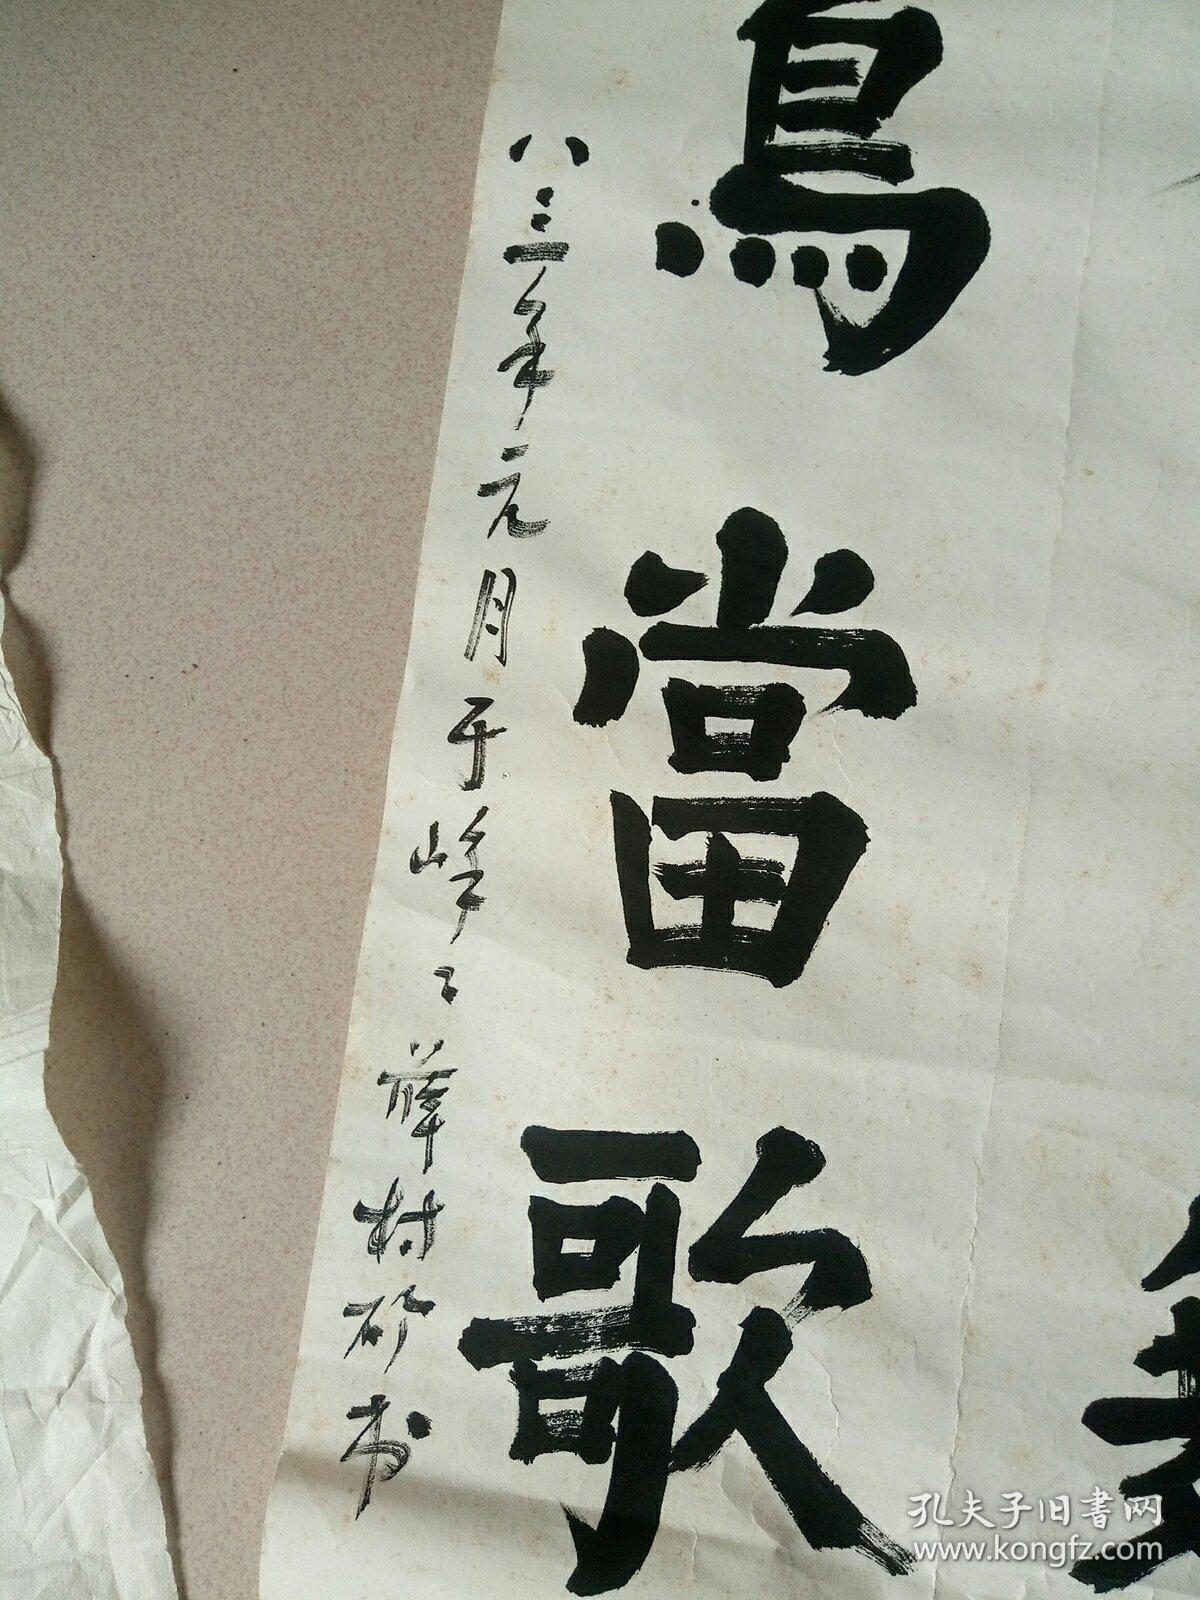 鳥當歌
八三年元月于峰々薛村矿书
孔夫子旧書网
www.kongfz.com